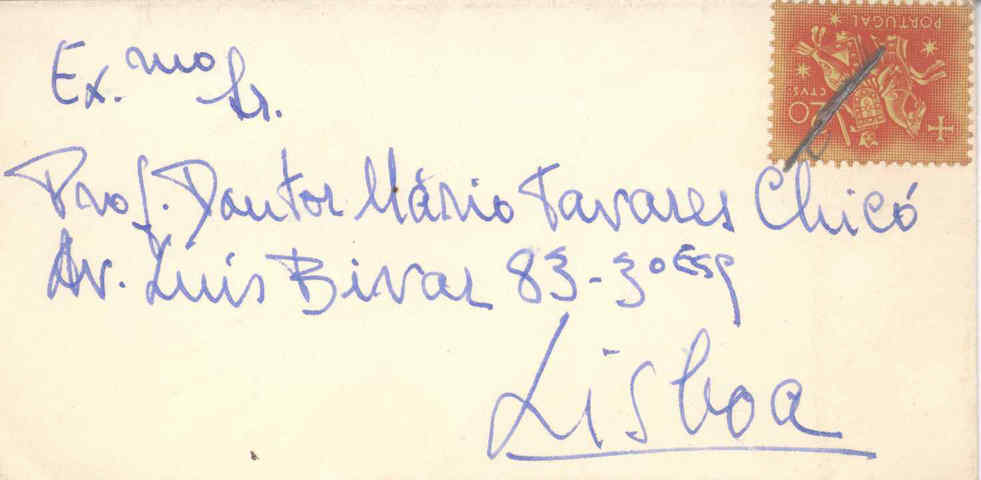 PORTUGAL
20
CTVS.
Ex.mo Sr.
Prof. Doutor Mário Tavares Chicó
Av. Luís Bivar 83-3º Esq
Lisboa